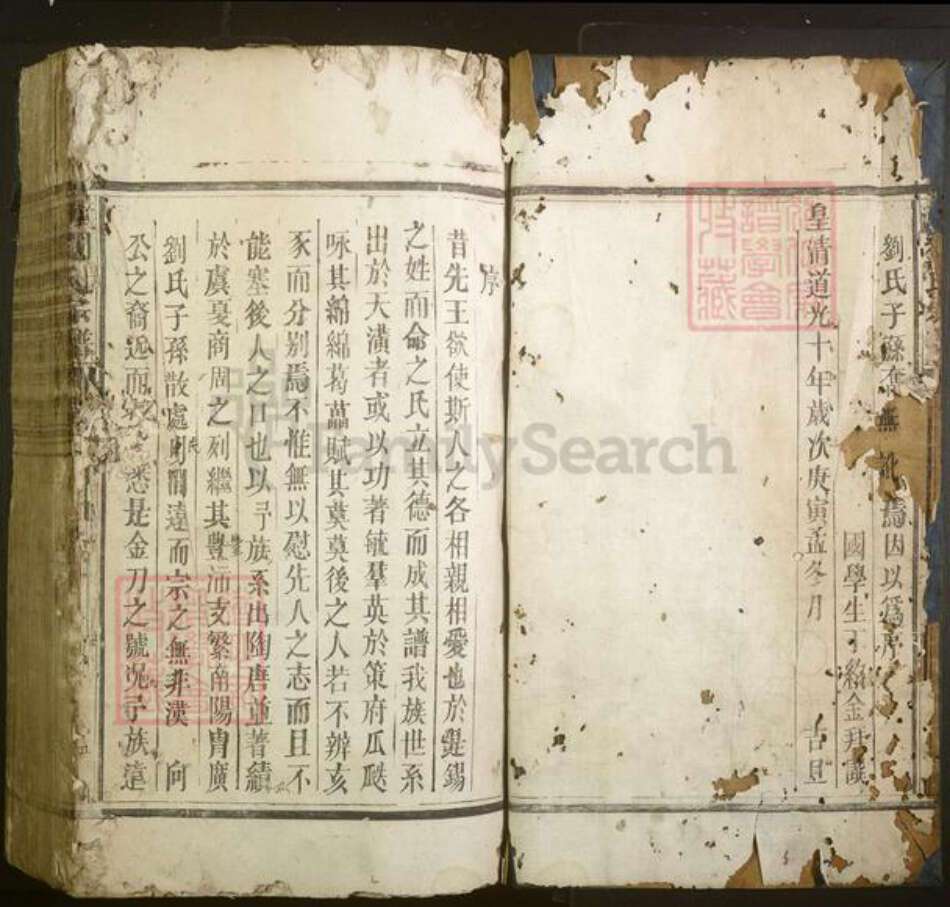 劉氏子孫有無 焉因以爲序
國學生丁 金拜識
皇清道光十年歲次庚寅孟冬月 吉旦
序
昔先王欲使斯人之各相親相愛也於是錫
之姓而命之氏立其德而成其譜我族世系
出於天潢者或以功著毓羣英於策府瓜瓞
咏其綿綿葛藟賦其莫莫後之人若不辨亥
豕而分别焉不惟無以慰先人之志而且不
能塞後人之口也以予族系出陶唐並著績
於虞夏商周之列繼其豐沛支繁南陽胄廣
劉氏子孫散處 遠而宗之無非漢 向
公之裔近而 悉是金刀之號况予族遠
FamilySearch